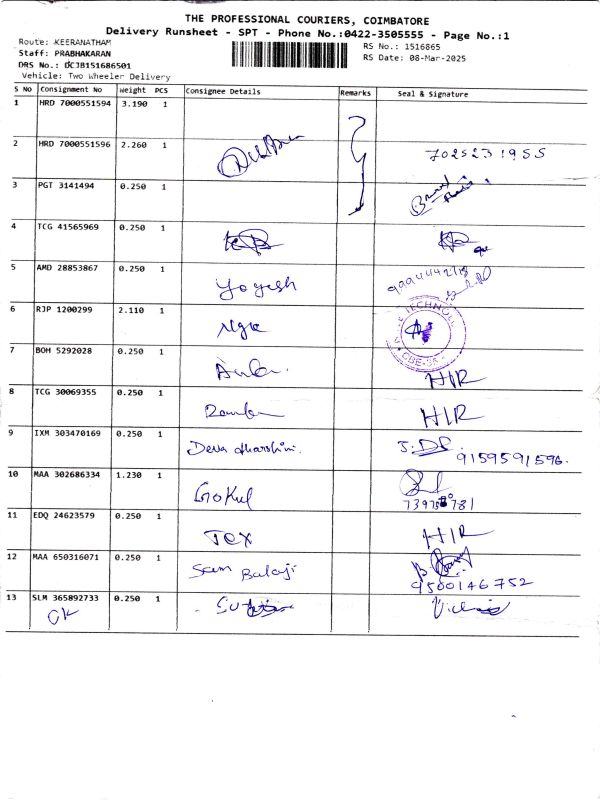 THE PROFESSIONAL COURIERS, COIMBATORE
Delivery Runsheet - SPT - Phone No.:0422-3505555 - Page No.:1
Route: KEERANATHAM
RS No.: 1516865
Staff: PRABHAKARAN
RS Date: 08-Mar-2025
DRS No.: DCJB151686501
Vehicle: Two Wheeler Delivery
S NO Consignment No Weight PCS Consignee Details Remarks Seal & Signature
1 HRD 7000551594 3.190 1
2 HRD 7000551596 2.260 1 7025231955
3 PGT 3141494 0.250 1
4 TCG 41565969 0.250 1
5 AMD 28853867 0.250 1 Yogesh
6 RJP 1200299 2.110 1
7 BOH 5292028 0.250 1 HIR
8 TCG 30069355 0.250 1 HIR
9 IXM 303470169 0.250 1 Deva dharshini. J. DS 9159591596.
10 MAA 302686334 1.230 1 Gokul
11 EDQ 24623579 0.250 1 TEX HIR
12 MAA 650316071 0.250 1 Sam Balaji 9500146752
13 SLM 365892733 0.250 1
OK